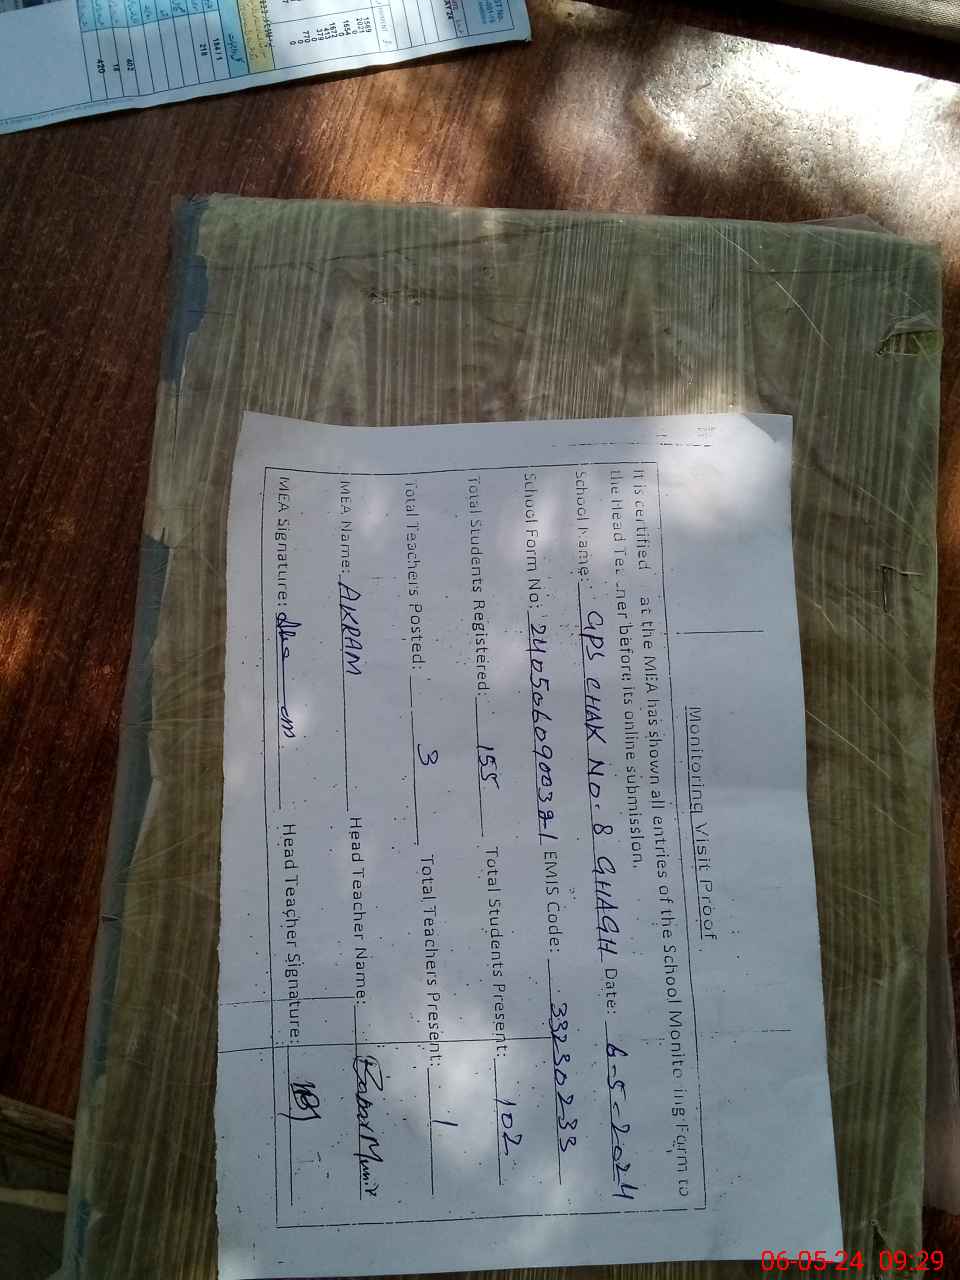 Monitoring Visit Proof
It is certified at the MEA has shown all entries of the School Monito ing Form to
the Head Te ner before its online submission.
School Name: GPS CHAK NO. 8 GHAGH Date: 6-5-2024
School Form No: EMIS Code: 33230233
Total Students Registered: 155 Total Students Present: 102
Total Teachers Posted: 3 Total Teachers Present: 1
MEA Name: AKRAM Head Teacher Name: Babar Munir
MEA Signature: Head Teacher Signature:
1569
2021
0
1654
0
1672
413
379
0
770
0
184/1
218
402
18
420
06-05-24 09:29